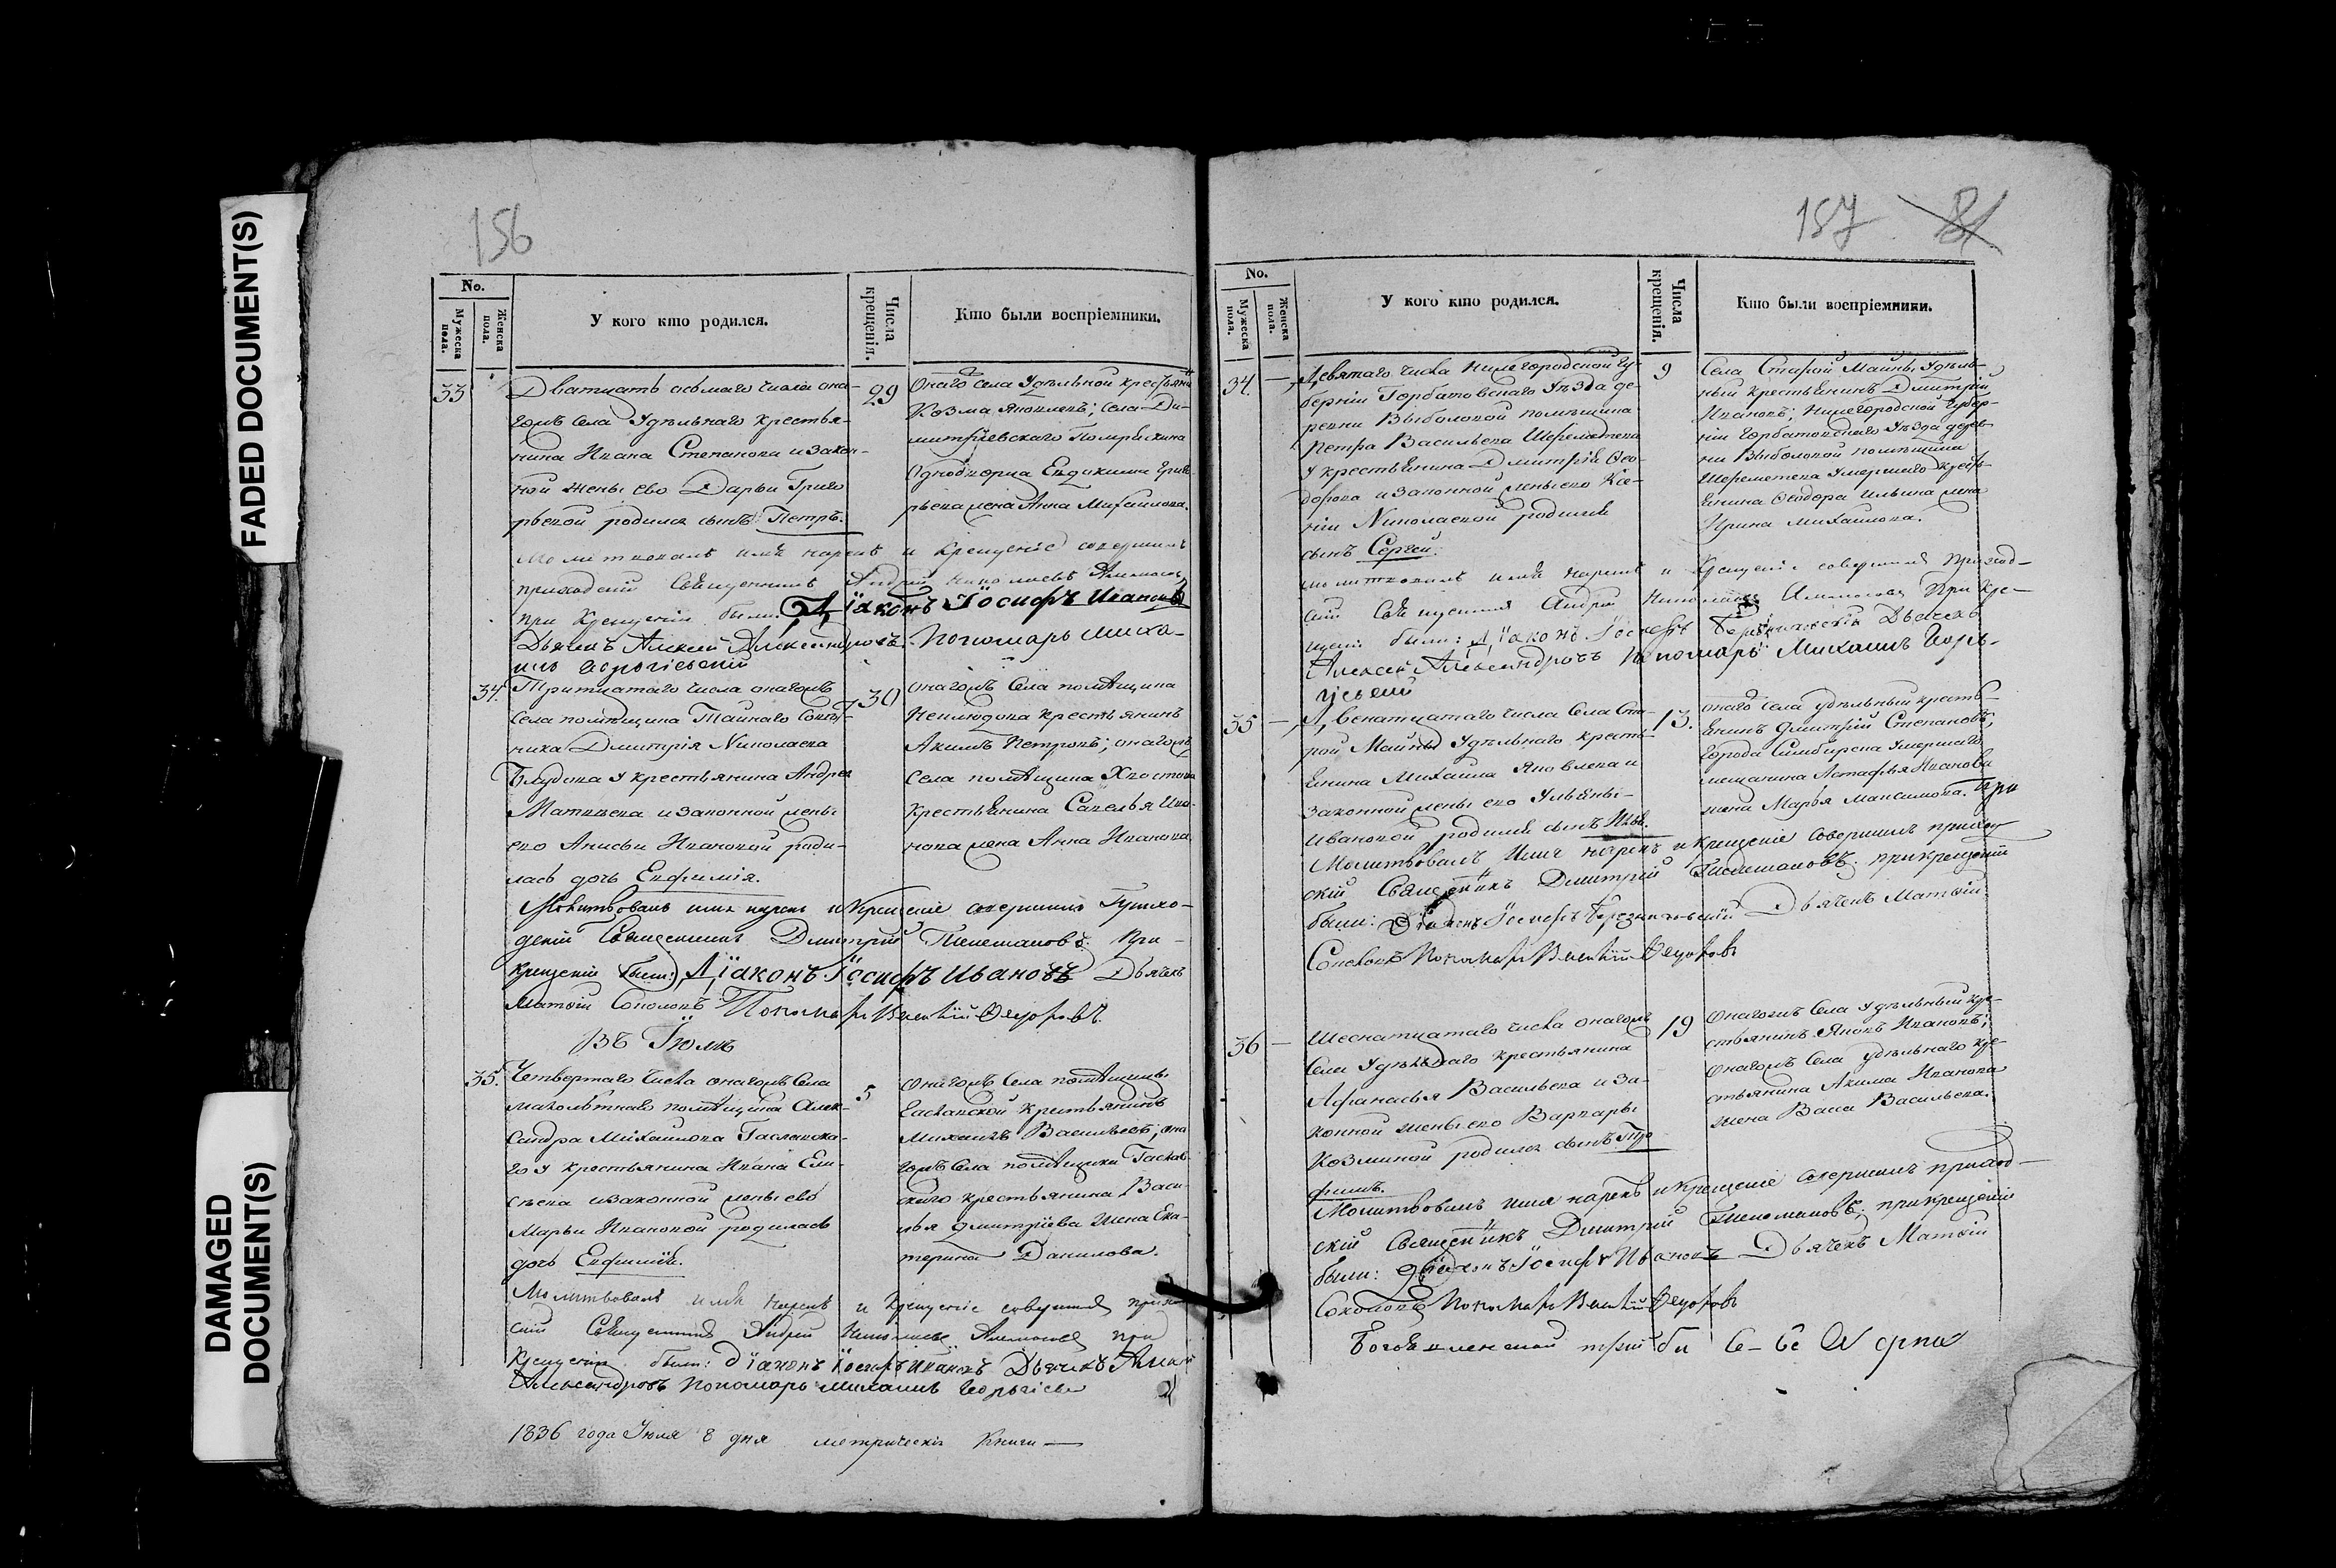 FADED DOCUMENT(S)
DAMAGED
DOCUMENT(S)
156
No.
Мужеска пола.
Женска пола.
У кого кто родился.
Числа крещенія.
Кто были воспріемники.
33
Дватцать осьмаго числа она-
гожъ села Удѣльнаго крестья-
нина Ивана Степанова и закон-
ной жены ево Дарьи Григо
рьевой родился сынъ Петръ.
29
Онаго села Удѣльной крестьяни
Козма Яковлевъ; села Ди-
митріевскаго Помряскина
Однодворца Евдокима Григо-
рьева жена Анна Михайлова.
Молитвовалъ имя нарекъ и крещеніе совершилъ
приходскій Священникъ Андрей Николаевъ
при крещеніи были: Діаконъ Іосифъ Ивановъ
Дьячекъ Алексѣй Александровъ. Пономарь Миха-
илъ Георгіевскій
34.
Тритцатаго числа онагожъ
Села помѣщика Тайнаго Совѣт-
ника Дмитрія Николаева
Блудова у крестьянина Андрея
Матвѣева и законной жены
ево Анисьи Ивановой роди-
лась дочь Евфимія.
30
онагожъ Села помѣщика
Неплюдова крестьянинъ
Акимъ Петровъ; онагожъ
села помѣщика Хвостова
крестьянина Савелья Ива-
нова жена Анна Иванова
Молитвовалъ имя нарекъ и крещеніе совершилъ Прихо-
дскій Священникъ Дмитрій При-
крещеніи были: Діаконъ Іосифъ Ивановъ Дьячекъ
Матвѣй Соколовъ Пономарь Василій Ѳедоровъ
Въ Іюлѣ
35.
Четвертаго числа онагожъ Села
малолѣтнаго помѣщика Алек-
сандра Михайлова
го у крестьянина Ивана Ели-
сѣева и законной жены ево
Марьи Ивановой родилась
дочь Евфимія.
5
онагожъ Села помѣщицы
крестьянинъ
Михаилъ Васильевъ; она
гожъ Села помѣщика
крестьянина Васи-
лья Дмитріева жена Ека-
терина Данилова.
Молитвовалъ имя нарекъ и крещеніе совершилъ приход
скій Священникъ Андрей Николаевъ при
крещеніи были: Діаконъ Іосифъ Ивановъ Дьячекъ Алексѣй
Александровъ Пономарь Михаилъ Георгіевс
1836 года Іюля 8 дня метрическія Книги
157 81
No.
Мужеска пола.
Женска пола.
У кого кто родился.
Числа крещенія.
Кто были воспріемники.
34.
Девятаго числа Нижегородской Гу-
берніи Горбатовскаго Уѣзда де-
ревни Выболовой помѣщика
Петра Васильева Шереметева
у крестьянина Дмитрія Ѳео-
дорова и законной жены ево Ксе-
ніи Николаевой родился
сынъ Сергей.
9
Села Старой Майны Удѣль-
ный крестьянинъ Дмитрій
Ивановъ; Нижегородской Губер-
ніи Горбатовскаго Уѣзда дерев-
ни Выболовой помѣщика
Шереметева Умершаго крест-
янина Ѳеодора Ильина жена
Ирина Михайлова.
молитвовалъ имя нарекъ и крещеніе совершилъ приход-
скій Священникъ Андрей Николаевъ При кре-
щеніи были: Діаконъ Іосифъ Дьячекъ
Алексѣй Александровъ Пономарь Михаилъ Геор-
гіевскій
35
Двенатцатаго числа Села Ста-
рой Майны Удѣльнаго крестъ-
янина Михаила Яковлева и
законной жены ево Ульяны
Ивановой родился сынъ Илья.
13.
онаго села удѣльный кресть-
янинъ Дмитрій Степановъ;
Города Симбирска Умершаго
мещанина Астафья Иванова
жена Марья Максимова. При
Молитвовалъ Имя нарекъ и крещеніе совершилъ приход
скій Священникъ Дмитрій при крещеніи
были: Діаконъ Іосифъ Дьячекъ Матвѣй
Соколовъ Пономарь Василій Ѳедоровъ
36
Шеснатцатаго числа онагожъ
Села Удѣльнаго крестьянина
Афанасья Васильева и за-
конной жены ево Варвары
Козминой родился сынъ Тро
фимъ.
19
Онагожъ Села Удѣльный кре-
стьянинъ Яковъ Ивановъ;
онагожъ Села удѣльнаго кре-
стьянина Акима Иванова
жена Васса Васильева.
Молитвовалъ имя нарекъ и крещеніе совершилъ приход-
скій Священникъ Дмитрій при крещеніи
были: Діаконъ Іосифъ Ивановъ Дьячекъ Матвѣй
Соколовъ Пономарь Василій Ѳедоровъ